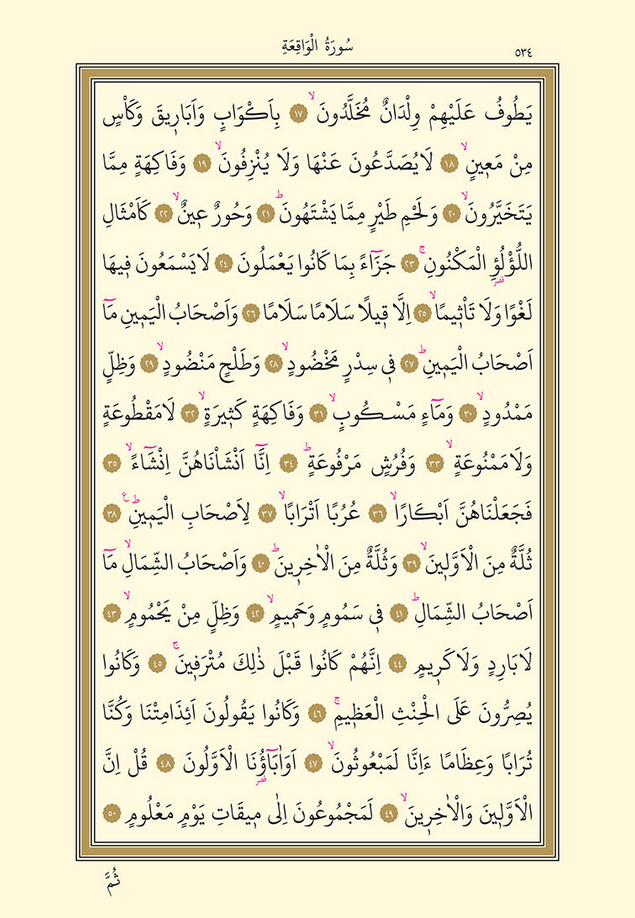 سُورَةُ الْوَاقِعَةِ
٥٣٤
يَطُوفُ عَلَيْهِمْ وِلْدَانٌ مُخَلَّدُونَۙ ١٧ بِاَكْوَابٍ وَاَبَارٖيقَ وَكَأْسٍ
مِنْ مَعٖينٍۙ ١٨ لَايُصَدَّعُونَ عَنْهَا وَلَا يُنْزِفُونَۙ ١٩ وَفَاكِهَةٍ مِمَّا
يَتَخَيَّرُونَۙ ٢٠ وَلَحْمِ طَيْرٍ مِمَّا يَشْتَهُونَؕ ٢١ وَحُورٌ عٖينٌۙ ٢٢ كَاَمْثَالِ
اللُّؤْلُؤِ الْمَكْنُونِۚ ٢٣ جَزَٓاءً بِمَا كَانُوا يَعْمَلُونَ ٢٤ لَايَسْمَعُونَ فٖيهَا
لَغْوًا وَلَا تَأْثٖيمًاۙ ٢٥ اِلَّا قٖيلًا سَلَامًا سَلَامًا ٢٦ وَاَصْحَابُ الْيَمٖينِ مَٓا
اَصْحَابُ الْيَمٖينِؕ ٢٧ فٖى سِدْرٍ مَخْضُودٍۙ ٢٨ وَطَلْحٍ مَنْضُودٍۙ ٢٩ وَظِلٍّ
مَمْدُودٍۙ ٣٠ وَمَٓاءٍ مَسْكُوبٍۙ ٣١ وَفَاكِهَةٍ كَثٖيرَةٍۙ ٣٢ لَامَقْطُوعَةٍ
وَلَامَمْنُوعَةٍۙ ٣٣ وَفُرُشٍ مَرْفُوعَةٍؕ ٣٤ اِنَّٓا اَنْشَأْنَاهُنَّ اِنْشَٓاءًۙ ٣٥
فَجَعَلْنَاهُنَّ اَبْكَارًاۙ ٣٦ عُرُبًا اَتْرَابًاۙ ٣٧ لِاَصْحَابِ الْيَمٖينِؕ ع ٣٨
ثُلَّةٌ مِنَ الْاَوَّلٖينَۙ ٣٩ وَثُلَّةٌ مِنَ الْاٰخِرٖينَؕ ٤٠ وَاَصْحَابُ الشِّمَالِۙ مَٓا
اَصْحَابُ الشِّمَالِؕ ٤١ فٖى سَمُومٍ وَحَمٖيمٍۙ ٤٢ وَظِلٍّ مِنْ يَحْمُومٍۙ ٤٣
لَابَارِدٍ وَلَاكَرٖيمٍ ٤٤ اِنَّهُمْ كَانُوا قَبْلَ ذٰلِكَ مُتْرَفٖينَۚ ٤٥ وَكَانُوا
يُصِرُّونَ عَلَى الْحِنْثِ الْعَظٖيمِۚ ٤٦ وَكَانُوا يَقُولُونَ اَئِذَامِتْنَا وَكُنَّا
تُرَابًا وَعِظَامًا ءَاِنَّا لَمَبْعُوثُونَۙ ٤٧ اَوَاٰبَٓاؤُنَا الْاَوَّلُونَ ٤٨ قُلْ اِنَّ
الْاَوَّلٖينَ وَالْاٰخِرٖينَۙ ٤٩ لَمَجْمُوعُونَ اِلٰى مٖيقَاتِ يَوْمٍ مَعْلُومٍ ٥٠
ثُمَّ